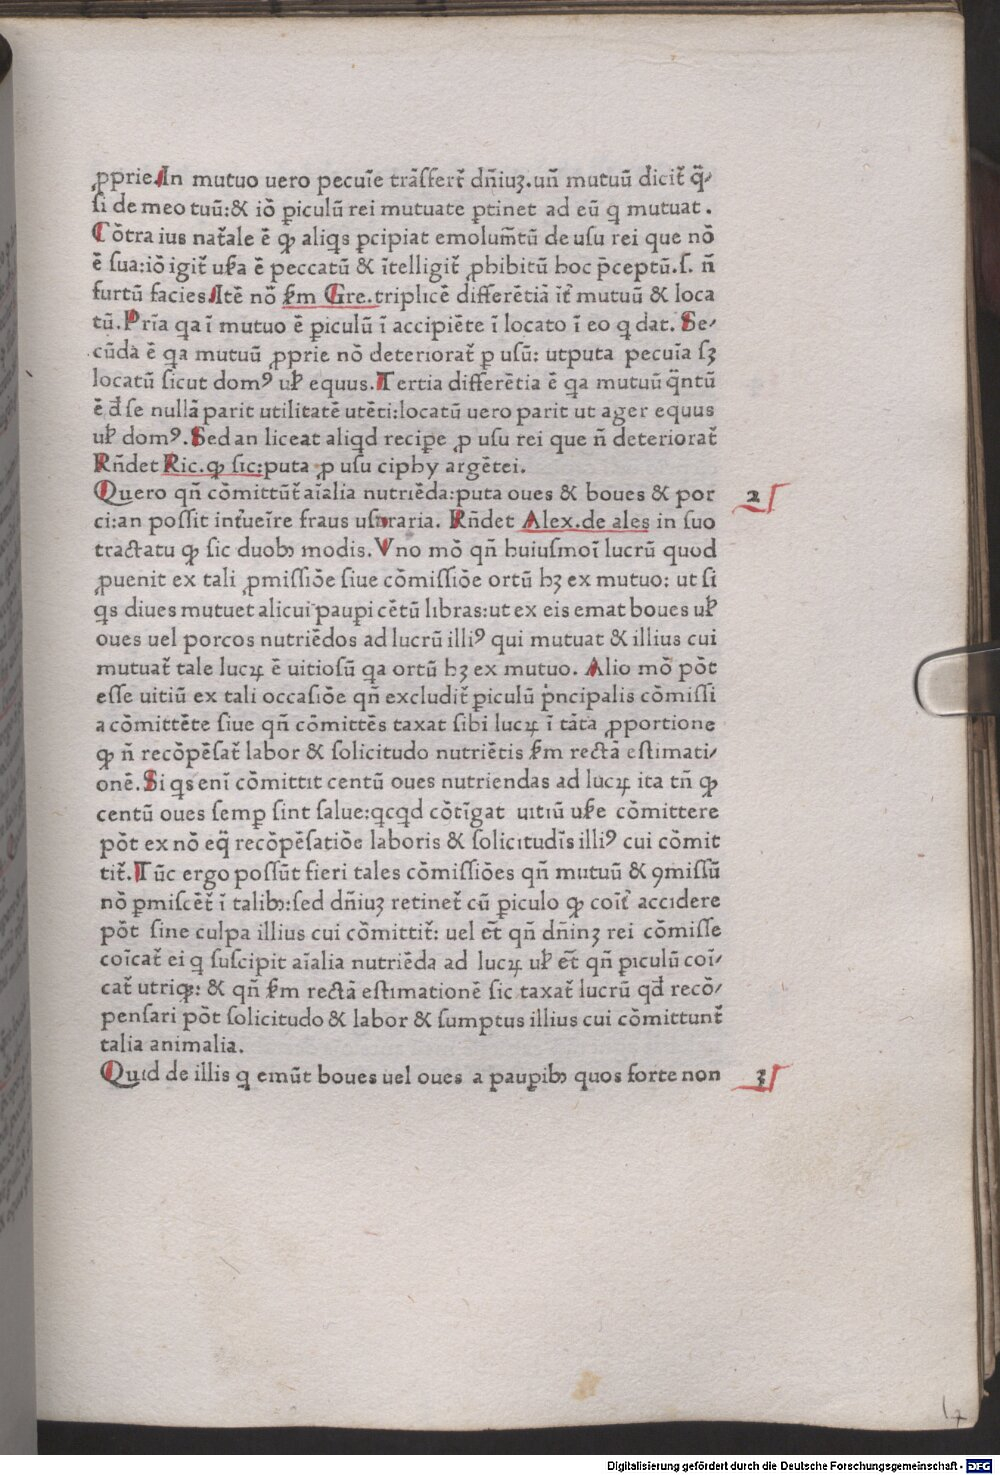 ꝓprie. In mutuo uero pecuīe trāsfert̄ dn̄iuꝫ. un̄ mutuū dicit̄ q̄-
si de meo tuū: & iō ꝑiculū rei mutuate ꝑtinet ad eū q mutuat.
Cōtra ius nat̄ale ē ꝙ aliqs ꝑcipiat emolum̄tū de usu rei que nō
ē sua: iō igit̄ uẜa ē peccatū & ītelligit̄ ꝓhibitū hoc p̄ceptū. s. n̄
furtū facies. Itē nō ẜm Gre. triplicē differētiā it̄ mutuū & loca
tū. Prīa qa ī mutuo ē ꝑiculū ī accipiēte ī locato ī eo q dat. Se-
cūda ē qa mutuū ꝓprie nō deteriorat̄ ꝑ usū: utputa pecuīa sꝫ
locatū sicut domꝰ uł equus. Tertia differētia ē qa mutuū q̄ntū
ē đ se nullā parit utilitatē utēti: locatū uero parit ut ager equus
uł domꝰ. Sed an liceat aliqd recipe ꝓ usu rei que n̄ deteriorat̄
Rn̄det Ric. ꝙ sic: puta ꝓ usu ciphy argētei.
Quero qn̄ cōmittūt̄ aīalia nutriēda: puta oues & boues & por
ci: an possit int̄ueīre fraus usuraria. Rn̄det Alex. de ales in suo
tractatu ꝙ sic duobꝫ modis. Vno mō qn̄ huiusmoī lucrū quod
ꝓuenit ex tali ꝓmissiōe siue cōmissiōe ortū hꝫ ex mutuo: ut si
qs diues mutuet alicui pauꝑi cētū libras: ut ex eis emat boues uł
oues uel porcos nutriēdos ad lucrū illiꝰ qui mutuat & illius cui
mutuat̄ tale lucꝝ ē uitiosū qa ortū hꝫ ex mutuo. Alio mō pōt
esse uitiū ex tali occasiōe qn̄ excludit̄ ꝑiculū pͥncipalis cōmissi
a cōmittēte siue qn̄ cōmittēs taxat sibi lucꝝ ī tāta ꝓportione
ꝙ n̄ recōpēsat̄ labor & solicitudo nutriētis ẜm rectā estimati-
onē. Si qs enī cōmittit centū oues nutriendas ad lucꝝ ita tn̄ ꝙ
centū oues semꝑ sint salue: qcqd cōtīgat uitiū uẜe cōmittere
pōt ex nō eq̄ recōpēsatiōe laboris & solicitudīs illiꝰ cui cōmit
tit̄. Tūc ergo possūt fieri tales cōmissiōes qn̄ mutuū & ꝯmissū
nō ꝑmiscēt̄ ī talibꝫ: sed dn̄iuꝫ retinet̄ cū ꝑiculo ꝙ coīt̄ accidere
pōt sine culpa illius cui cōmittit̄: uel et̄ qn̄ dn̄inꝫ rei cōmisse
coīcat̄ ei q suscipit aīalia nutriēda ad lucꝝ uł et̄ qn̄ ꝑiculū coī-
cat̄ utriqꝫ: & qn̄ ẜm rectā estimationē sic taxat̄ lucrū qđ recō-
pensari pōt solicitudo & labor & sumptus illius cui cōmittunt̄
talia animalia.
Quid de illis q emūt boues uel oues a pauꝑibꝫ quos forte non
2
3
17
Digitalisierung gefördert durch die Deutsche Forschungsgemeinschaft - DFG